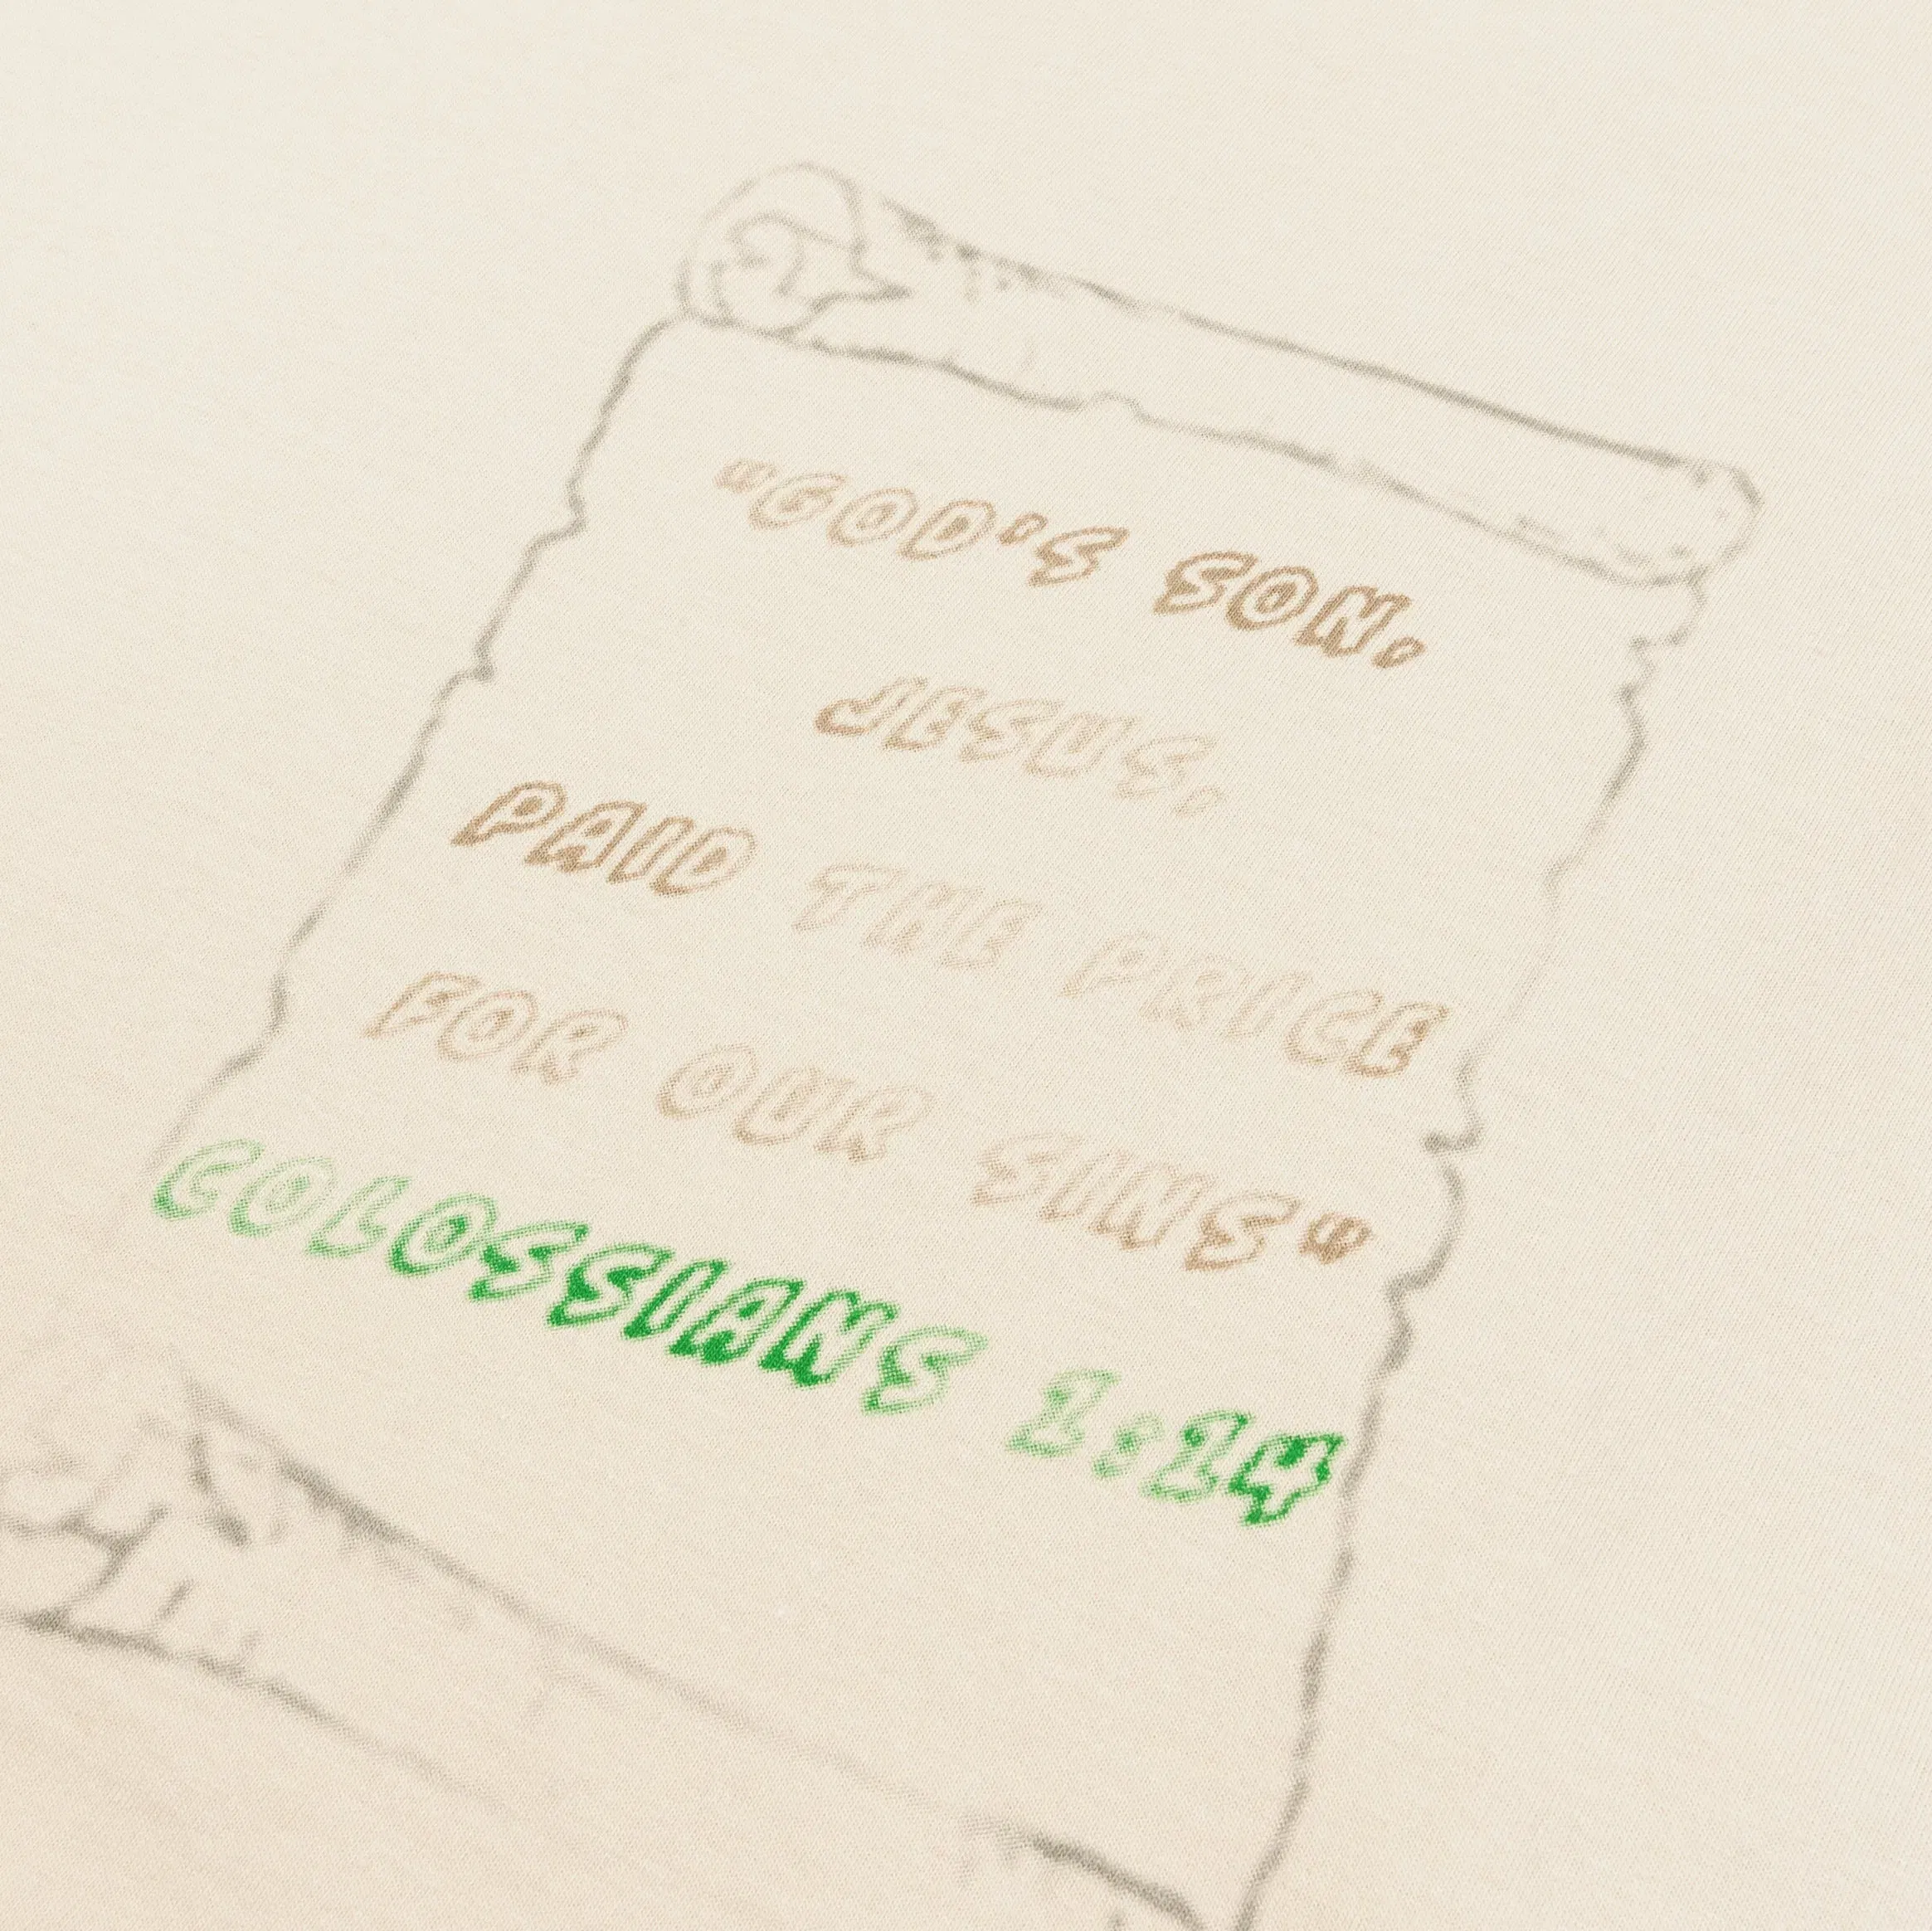 "GOD'S SON,
JESUS,
PAID THE PRICE
FOR OUR SINS"
COLOSSIANS 1:14